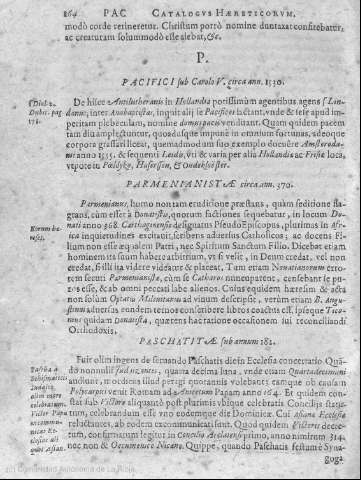 164 PAC CATALOGUS HÆRETICORUM,
modò corde retineretur. Christum porrò nomine duntaxat confitebatur,
ac creaturam solummodò esse aiebat, &c.
P.
PACIFICI sub Carolo V. circa ann. 1530.
De hisce Antilutheranis in Hollandia potissimùm agentibus agens Lin-
danus; inter Anabaptistas, inquit alij se Pacificos iactant, unde & sese apud im-
peritam plebeculam, nomine
tam diu amplectuntur, quoadusque impunè in omnium fortunas, adeoque
corpora grassari liceat, quemadmodum suo exemplo docuêre Amsteroda-
mi anno 1535. & sequenti Leidæ, uti & varia per alia Hollandiæ ac Frisiæ loca,
utpote
PARMENIANISTÆ circa ann. 370.
Parmenianus, homo non tam eruditione præstans, quàm seditione fla-
grans, cùm esset à Donatistis, quorum factiones sequebatur, in locum Do-
nati anno 368. Carthaginensis designatus Pseudo Episcopus, plurimos in Afri-
ca inquietandines excitavit, scribens adversus Catholicos; ac docens Fi-
lium non esse æqualem Patri, nec Spiritum Sanctum Filio. Dicebat etiam
hominem ita suum habere arbitrium, ut si velit, in Deum credat, vel non
credat, si illi ita videre videatur & placeat. Tum etiam Novatianorum erro-
rem secuti Parmenianistæ, cùm se Catharos nuncuparent, censebant se pu-
ros esse, & ab omni peccati labe alienos. Cuius equidem hæresim & acta
non solùm Optatus Milevitanus ad vivum descripsit, verùm etiam B. Augu-
stinus adversus eundem ternos conscribere libros coactus est, ipseque Tico-
nius quidam Donatista, quærens hac ratione occasionem sui reconciliandi
Orthodoxis.
PASCHATITÆ sub annum 182.
Fuit olim ingens de servando Paschatis die in Ecclesia concertatio. Quòd
quòdd nonnulli sud nitentes, quarta decima luna, unde etiam Quartadecimani
audiunt, mordicus illud peragi quotannis volebant; eamque ob causam
Polycarpus venit Romam ad Anicetum Papam anno 164. Et quidem con-
stat sub Victore aliquantò post plurimis ubique celebratis Conciliis statu-
tum, celebrandum esse uno eodemque die Dominico. Cui Asiana Ecclesia
reluctantes, ab eodem excommunicati sunt. Quod quidem Victoris decre-
tum, confirmatum legitur in Concilio Arelatensi primo, anno nimirum 314.
nec non & Oecumenico Nicæno. Quippe, quando Paschatis festum è Syna-
goga